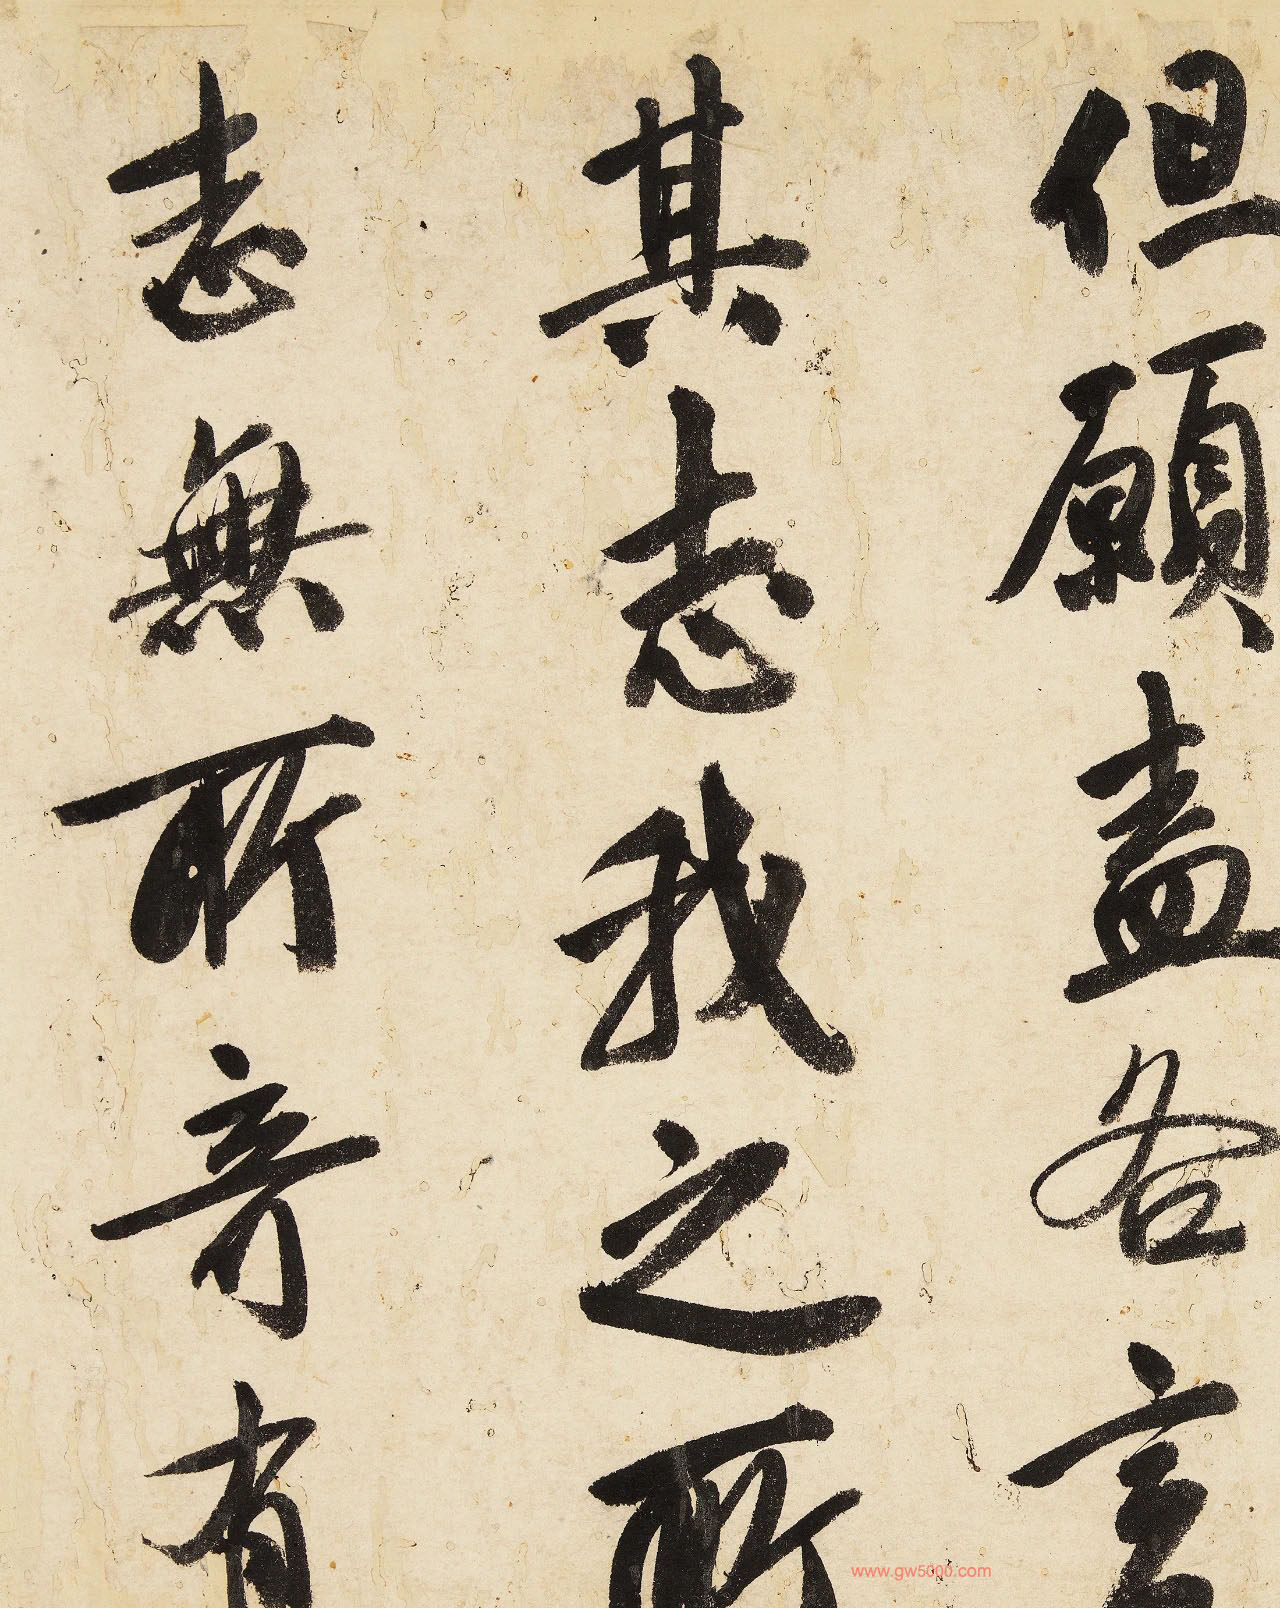 但願盡各言
其志我之所
志無所奇有
www.gw5000.com